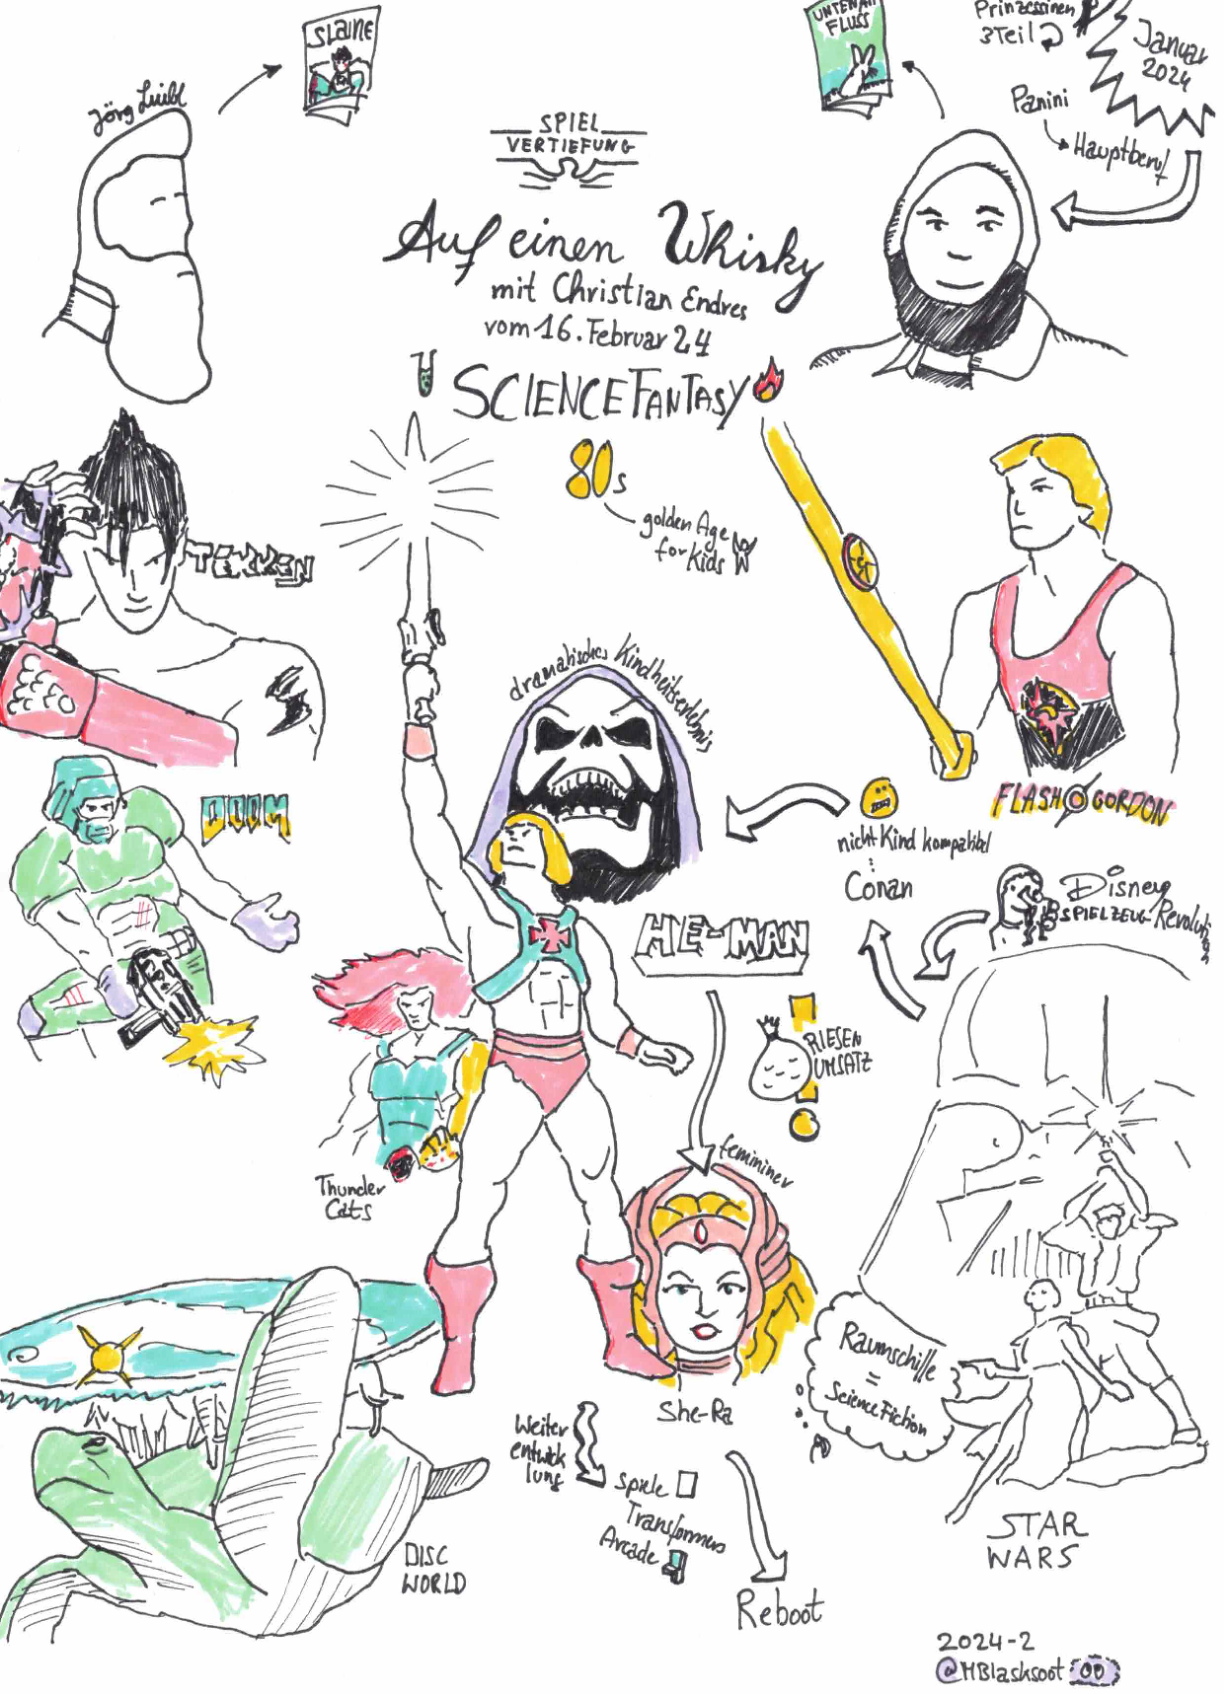 SLAINE
UNTEN AM
FLUSS
Prinzessinen
3Teil
Januar
2024
Panini
Hauptberuf
Jörg Luibl
SPIEL
VERTIEFUNG
Auf einen Whisky
mit Christian Endres
vom 16. Februar 24
SCIENCE FANTASY
80s
golden Age
for Kids
TEKKEN
dramatisches Kindheitserlebnis
FLASH GORDON
DOOM
nicht Kind kompatibel
:
Conan
Disney
SPIELZEUG-Revolution
HE-MAN
RIESEN
UMSATZ
Thunder
Cats
femininer
She-Ra
Raumschiffe
=
Science Fiction
Weiter
entwick
lung
Spiele
Transformers
Arcade
Reboot
DISC
WORLD
STAR
WARS
2024-2
@MBlacksoot